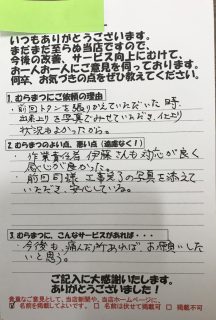 いつもありがとうございます。
まだまだ至らぬ当店ですので、
今後の改善、サービス向上にむけて、
お一人お一人にご意見を伺っております。
何卒、お気づきの点をぜひ教えてください。
1. むらまつにご依頼の理由
前回トタンを張りかえていただいた時、
出来上りを写真でみせていただき、仕上り
状況もよかったから。
2. むらまつのよい点、悪い点（遠慮なく！）
作業責任者 伊藤さんも対応が良く
感じが良かった。
前回同様、工事完了の写真を添えて
いただき、安心している。
3. むらまつに、こんなサービスがあれば・・・
今後も、痛んだ所あれば、お願いし
たいと思う。
ご記入に大感謝いたします。
ありがとうございました！
貴重なご意見として、当店新聞や、当店ホームページに、
名前を掲載してよいです。 名前は伏せて掲載可 掲載不可